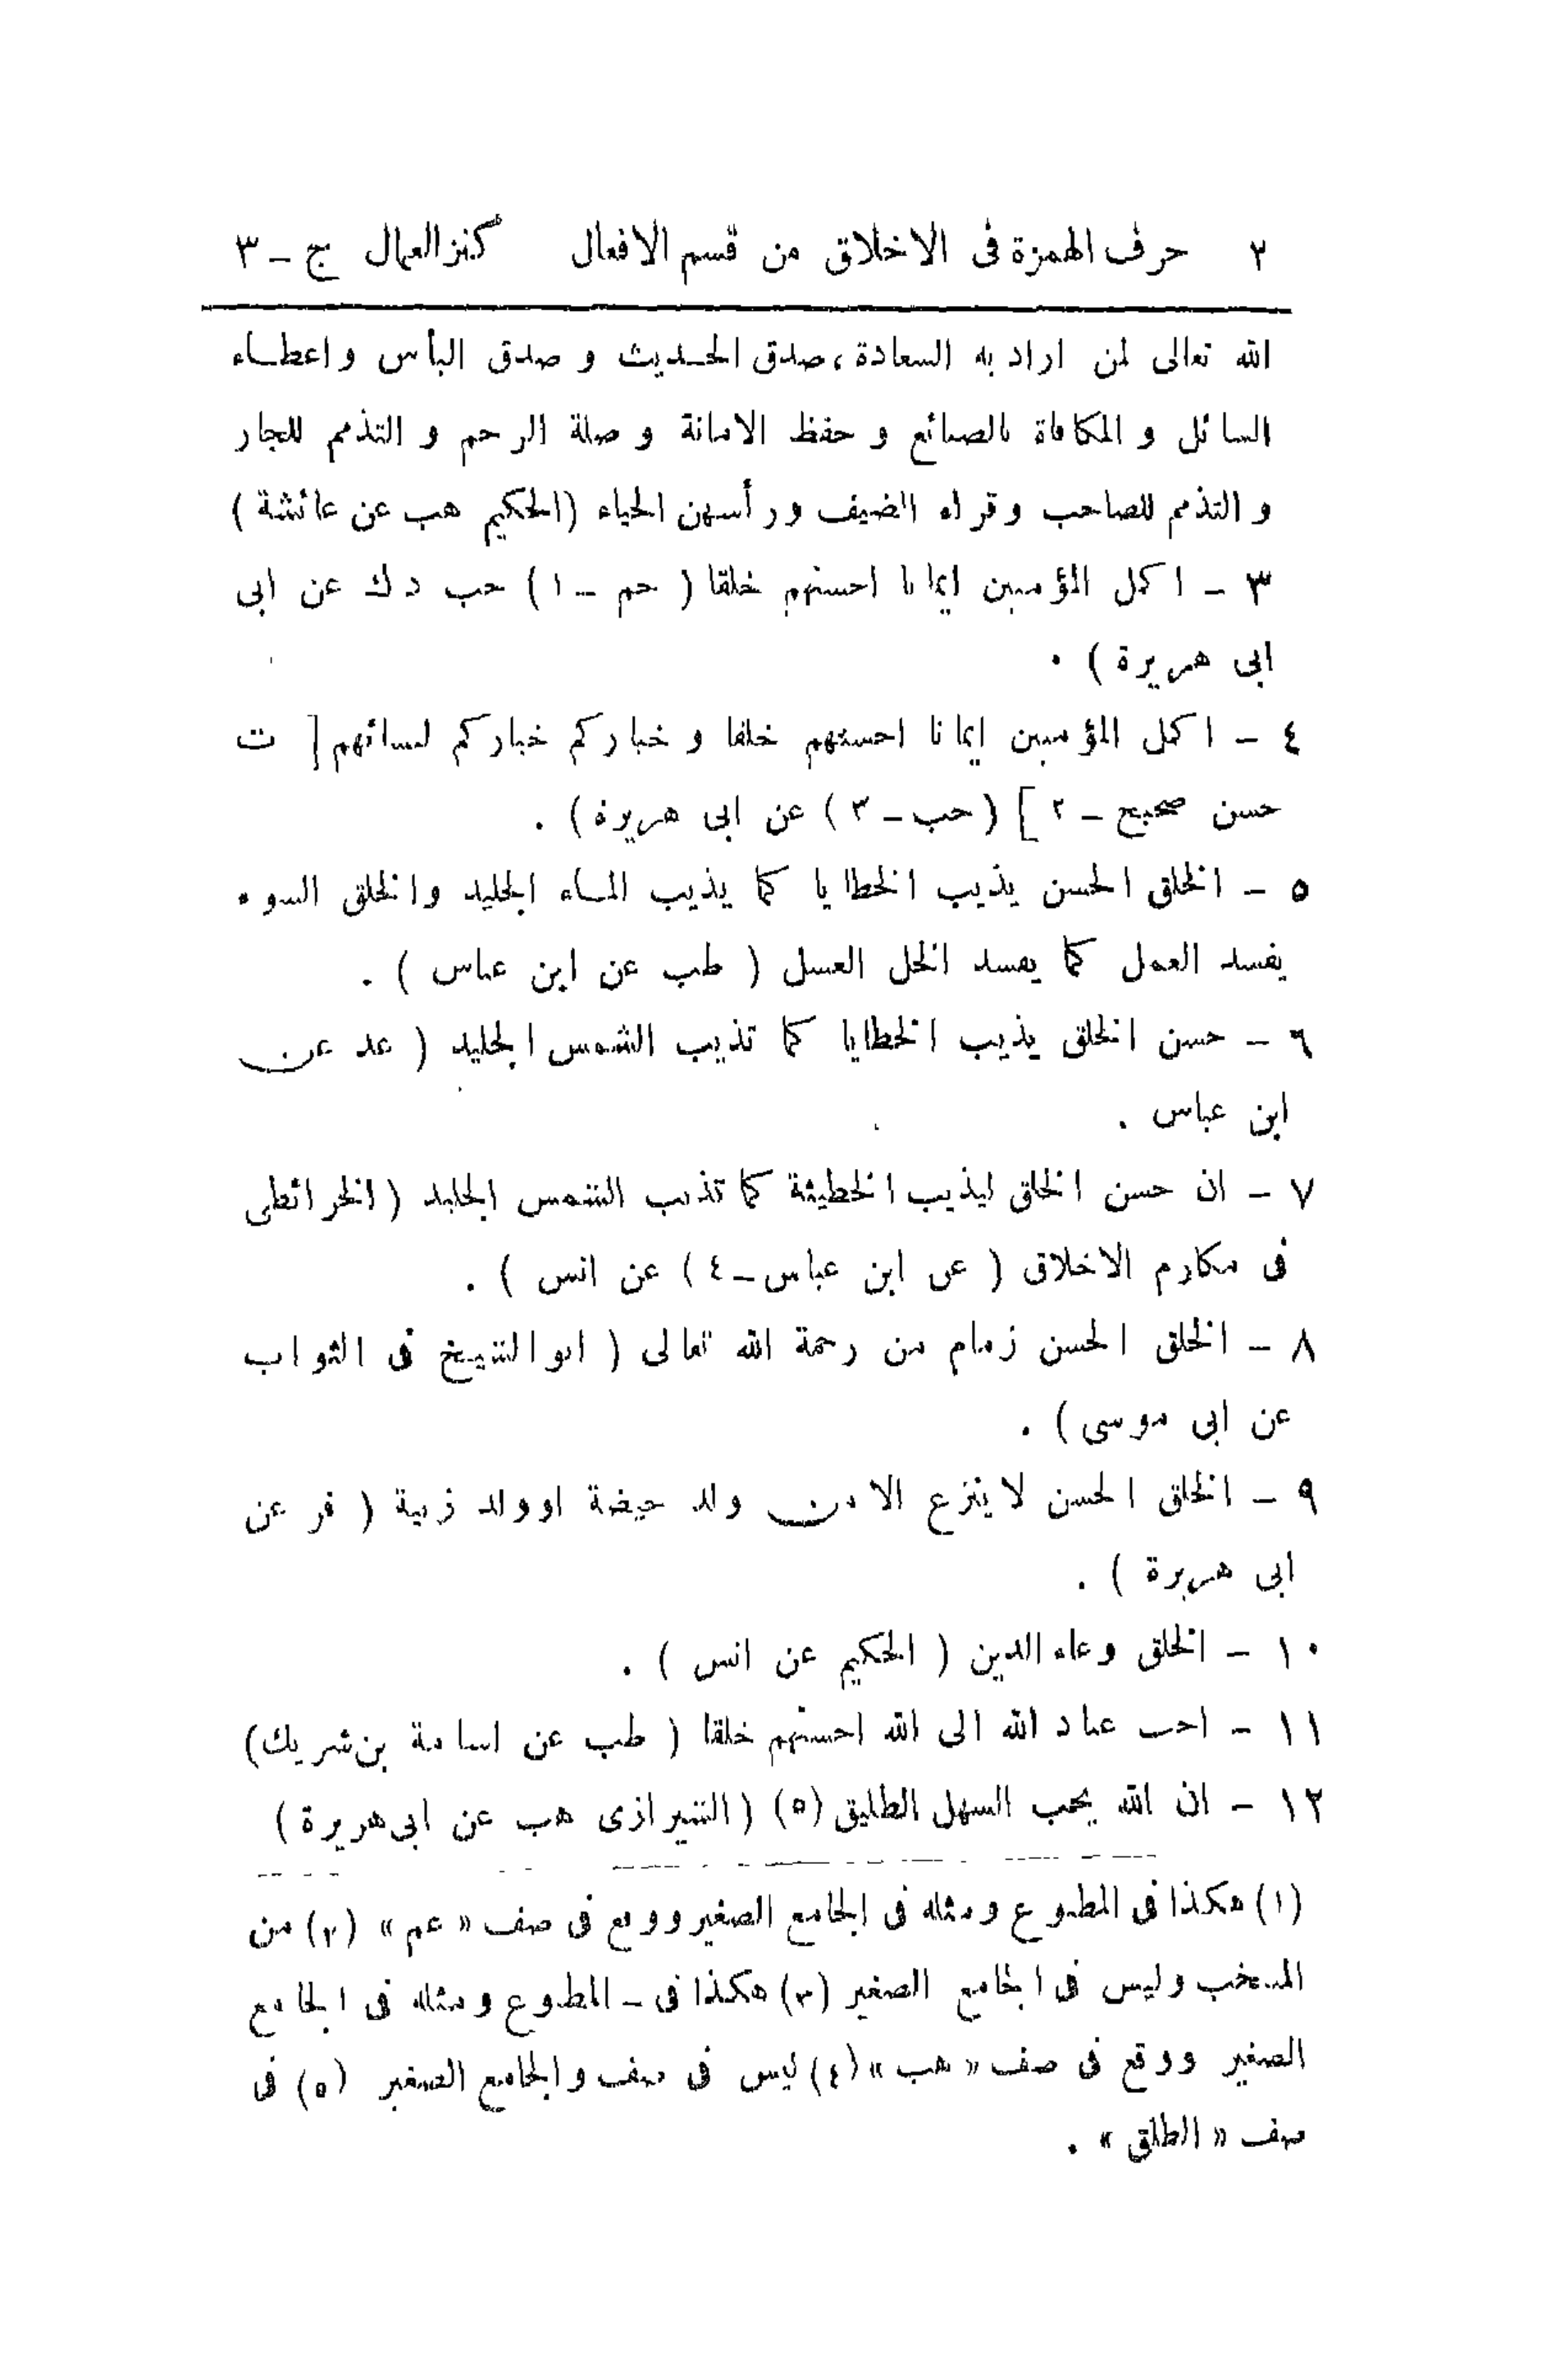 ٢ حرف الهمزة فى الاخلاق من قسم الافعال كنز العمال ج – ٣
الله تعالى لمن اراد به السعادة، صدق الحديث و صدق البأس و اعطاء
السائل و المكافاة بالصنائع و حفظ الامانة و صلة الرحم و التذمم للجار
و التذمم للصاحب و قراء الضيف و رأسهن الحياء (الحكيم هب عن عائشة)
٣ – اكمل المؤمنين ايمانا احسنهم خلقا (حم – ١) حب د ك عن ابى
ابى هريرة) .
٤ – اكمل المؤمنين ايمانا احسنهم خلقا و خياركم خياركم لنسائهم [ ت
حسن صحيح – ٢ ] (حب – ٣) عن ابى هريرة) .
٥ – الخلق الحسن يذيب الخطايا كما يذيب الماء الجليد والخلق السوء
يفسد العمل كما يفسد الخل العسل (طب عن ابن عباس) .
٦ – حسن الخلق يذيب الخطايا كما تذيب الشمس الجليد (عد عن
ابن عباس .
٧ – ان حسن الخلق ليذيب الخطيئة كما تذيب الشمس الجليد (الخرائطى
فى مكارم الاخلاق (عن ابن عباس – ٤) عن انس) .
٨ – الخلق الحسن زمام من رحمة الله تعالى (ابو الشيخ فى الثواب
عن ابى موسى) .
٩ – الخلق الحسن لا ينزع الا من ولد حيضة او ولد زنية (فر عن
ابى هريرة) .
١٠ – الخلق وعاء الدين (الحكيم عن انس) .
١١ – احب عباد الله الى الله احسنهم خلقا (طب عن اسامة بن شريك)
١٢ – ان الله يحب السهل الطليق (٥) (الشيرازى هب عن ابى هريرة)
(١) هكذا فى المطبوع ومثله فى الجامع الصغير ووقع فى صف «عم» (٢) من
المنتخب وليس فى الجامع الصغير (٣) هكذا فى – المطبوع ومثله فى الجامع
الصغير ووقع فى صف «هب» (٤) ليس فى صف والجامع الصغير (٥) فى
صف «الطلق» .